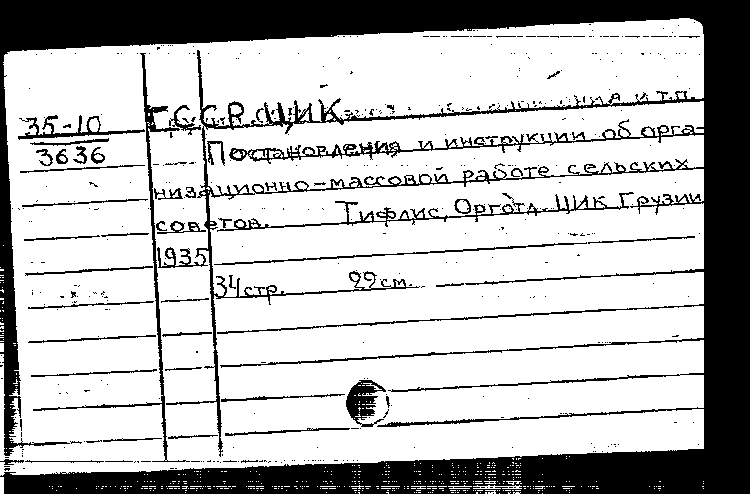 35-10
3636
Г.С.С.Р. ЦИК и т.п.
Постановления и инструкции об орга=
низационно-массовой работе сельских
советов. Тифлис, Оргота. ЦИК Грузии
1935
34 стр. 22 см.